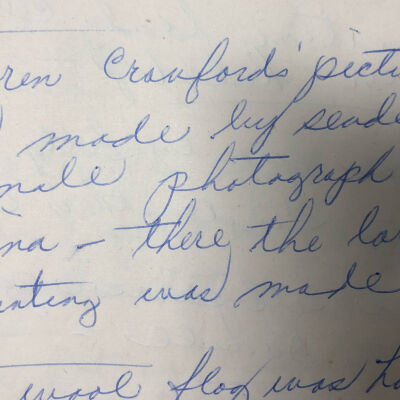 ren Crawford's pictu
made by sende
male photograph
na - there the la
nting was made
wool flag was ha